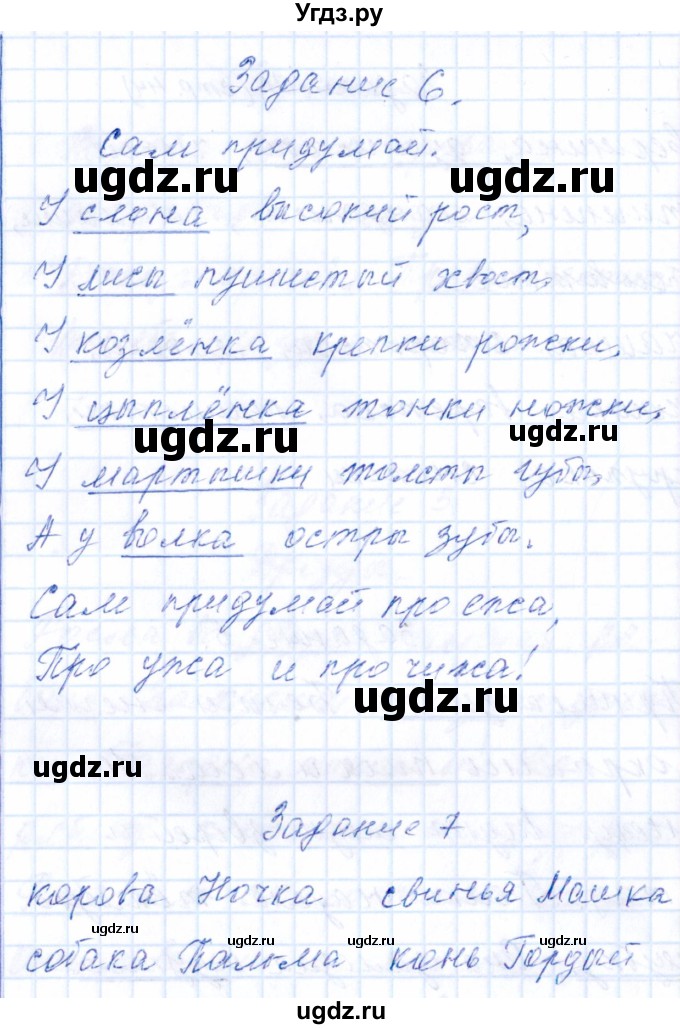 Угдз.ру
Задание 6.
Сам придумай.
ugdz.ru ugdz.ru
У слона высокий рост,
У лисы пушистый хвост,
У козлёнка крепки рожки,
У цыплёнка тонки ножки,
ugdz.ru ugdz.ru
У мартышки толсты губы,
А у волка остры зубы.
Сам придумай про ежа,
Про ужа и про чижа!
ugdz.ru
ugdz.ru
Задание 7
корова Ночка свинья Машка
ugdz.ru ugdz.ru ugdz.ru ugdz.ru
собака Пальма конь Гордый
ugdz.ru